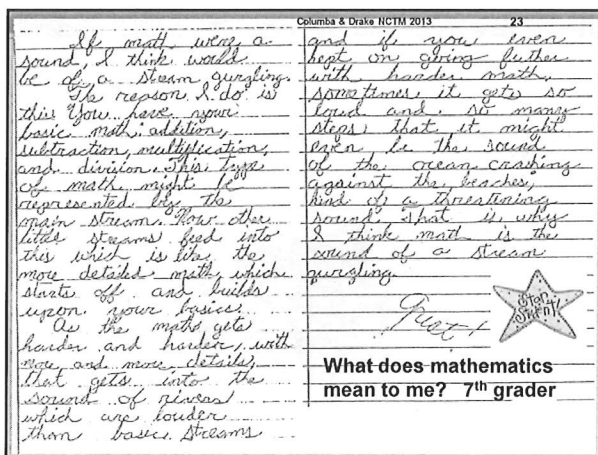 Columba & Drake NCTM 2013
23
If math were a
sound, I think would
be of a stream gurgling.
The reason I do is
this. You have your
basic math, addition,
subtraction, multiplication,
and division. This type
of math might be
represented by the
main stream. Now other
little streams feed into
this which is like the
more detailed math, which
starts off and builds
upon your basics.
As the math gets
harder and harder, with
more and more details,
that gets into the
sound of rivers
which are louder
than basic streams
and if you even
kept on going futher
with harder math,
sometimes it gets so
loud and so many
steps that it might
even be the sound
of the ocean crashing
against the beaches,
kind of a threatening
sound. That is why
I think math is the
sound of a stream
gurgling.
Great!
Star
Student!
What does mathematics
mean to me? 7th grader